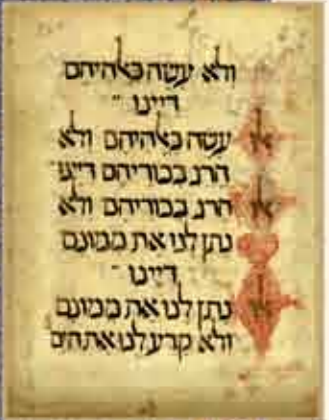 ולא עשה באלהיהם
דיינו
אלו עשה באלהיהם ולא
הרג בכוריהם דיינו
אלו הרג בכוריהם ולא
נתן לנו את ממונם
דיינו
אלו נתן לנו את ממונם
ולא קרע לנו את הים